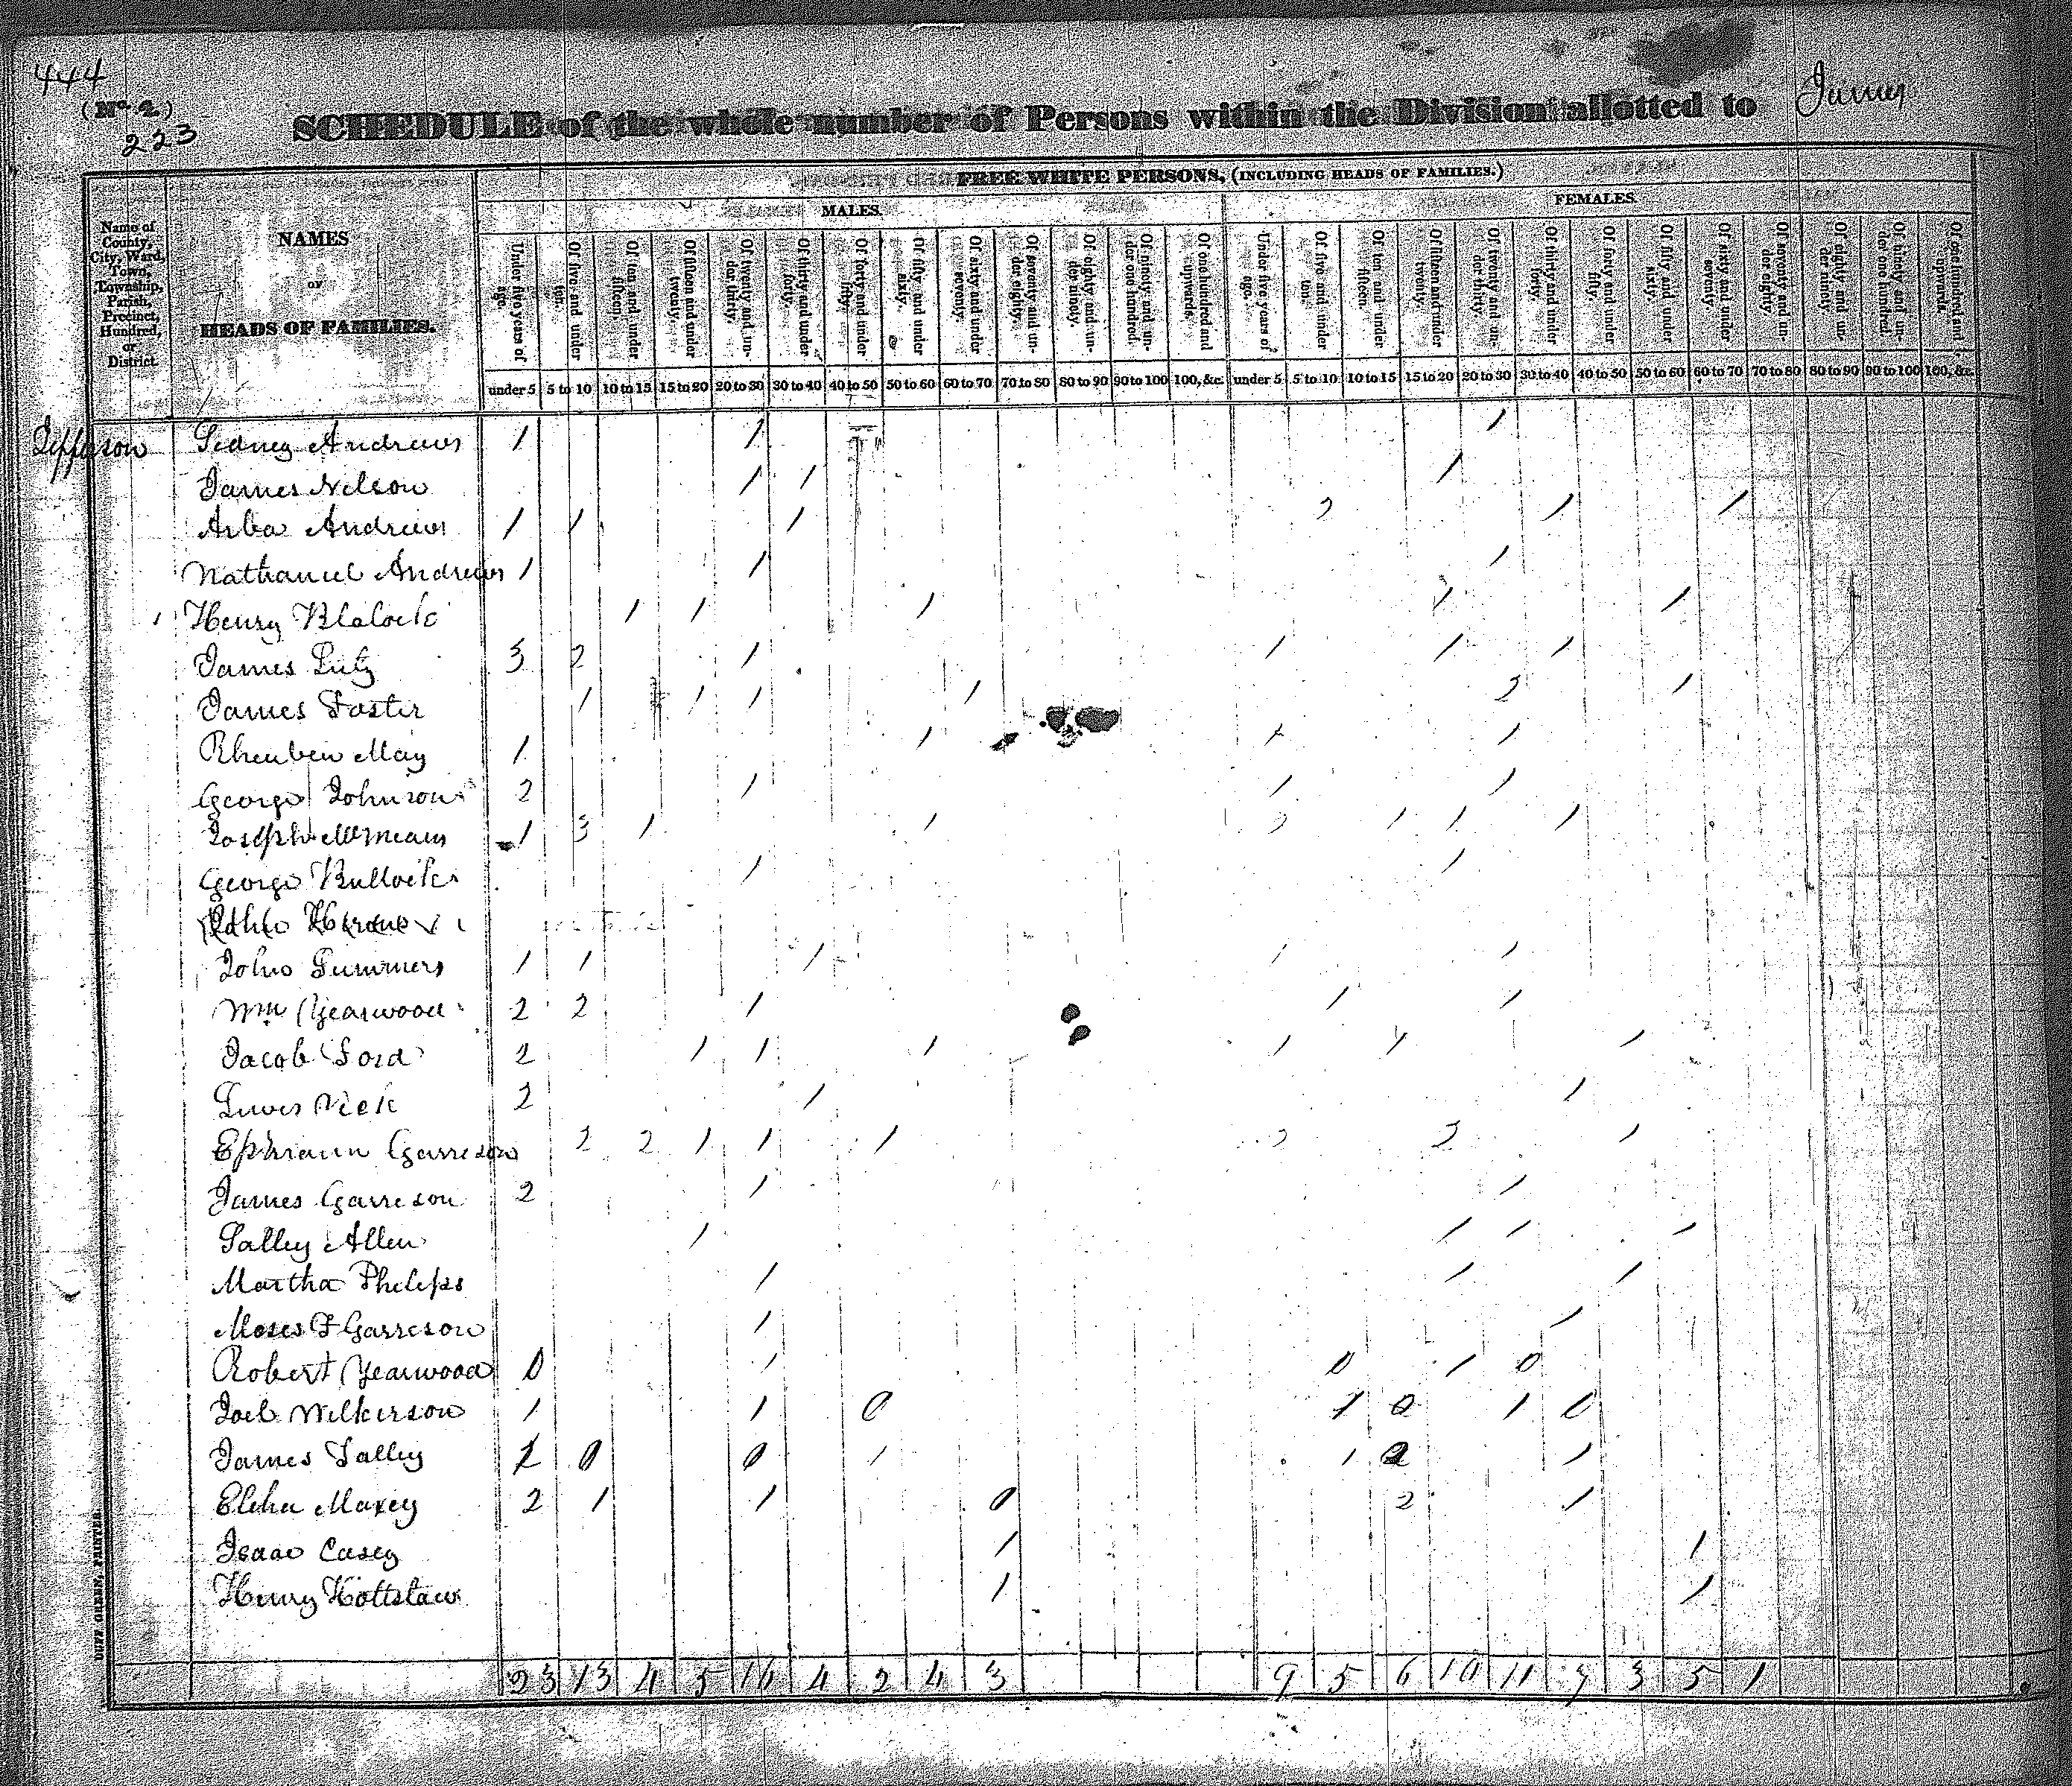 444
(No. 2)
223
SCHEDULE of the whole number of Persons within the Division allotted to James
FREE WHITE PERSONS, (INCLUDING HEADS OF FAMILIES.)
MALES. FEMALES.
Name of County, City, Ward, Town, Township, Parish, Precinct, Hundred, or District.
NAMES OF HEADS OF FAMILIES.
Under five years of age. Of five and under ten. Of ten and under fifteen. Of fifteen and under twenty. Of twenty and under thirty. Of thirty and under forty. Of forty and under fifty. Of fifty and under sixty. Of sixty and under seventy. Of seventy and under eighty. Of eighty and under ninety. Of ninety and under one hundred. Of one hundred and upwards. Under five years of age. Of five and under ten. Of ten and under fifteen. Of fifteen and under twenty. Of twenty and under thirty. Of thirty and under forty. Of forty and under fifty. Of fifty and under sixty. Of sixty and under seventy. Of seventy and under eighty. Of eighty and under ninety. Of ninety and under one hundred. Of one hundred and upwards.
under 5 5 to 10 10 to 15 15 to 20 20 to 30 30 to 40 40 to 50 50 to 60 60 to 70 70 to 80 80 to 90 90 to 100 100, &c. under 5 5 to 10 10 to 15 15 to 20 20 to 30 30 to 40 40 to 50 50 to 60 60 to 70 70 to 80 80 to 90 90 to 100 100, &c.
Jefferson Sidney Andrews 1 1 1
James Nelson 1 1 1
Arba Andrews 1 1 1 2 1 1
Nathaniel Andrews 1 1 1
Henry Blalock 1 1 1 1 1
James Lutz 3 2 1 1 1 1
James Foster 1 1 1 1 2 1
Rheuben May 1 1 1 1
George Johnson 2 1 1 1
Joseph 1 3 1 1 2 1 1 1
George Bullock 1 1
John Summers 1 1 1 1 1
Wm Yearwood 2 2 1 1 1
Jacob Ford 2 1 1 1 1 1 1
2 1 1
Ephraim Garreson 2 2 1 1 1 2 2 1
James Garreson 2 1 1
Salley Allen 1 1 1 1
Martha Philips 1 1 1
Moses F Garreson 1 1
Robert Yearwood 0 1 0 1 0
Joel Wilkerson 1 1 0 1 0 1 0
James Salley 1 0 0 1 1 2 1
Eliha Maxey 2 1 1 0 2 1
Isaac Casey 1 1
Henry 1 1
23 13 4 5 16 4 2 4 3 9 5 6 10 11 9 3 5 1
DUFF GREEN, PRINTER.